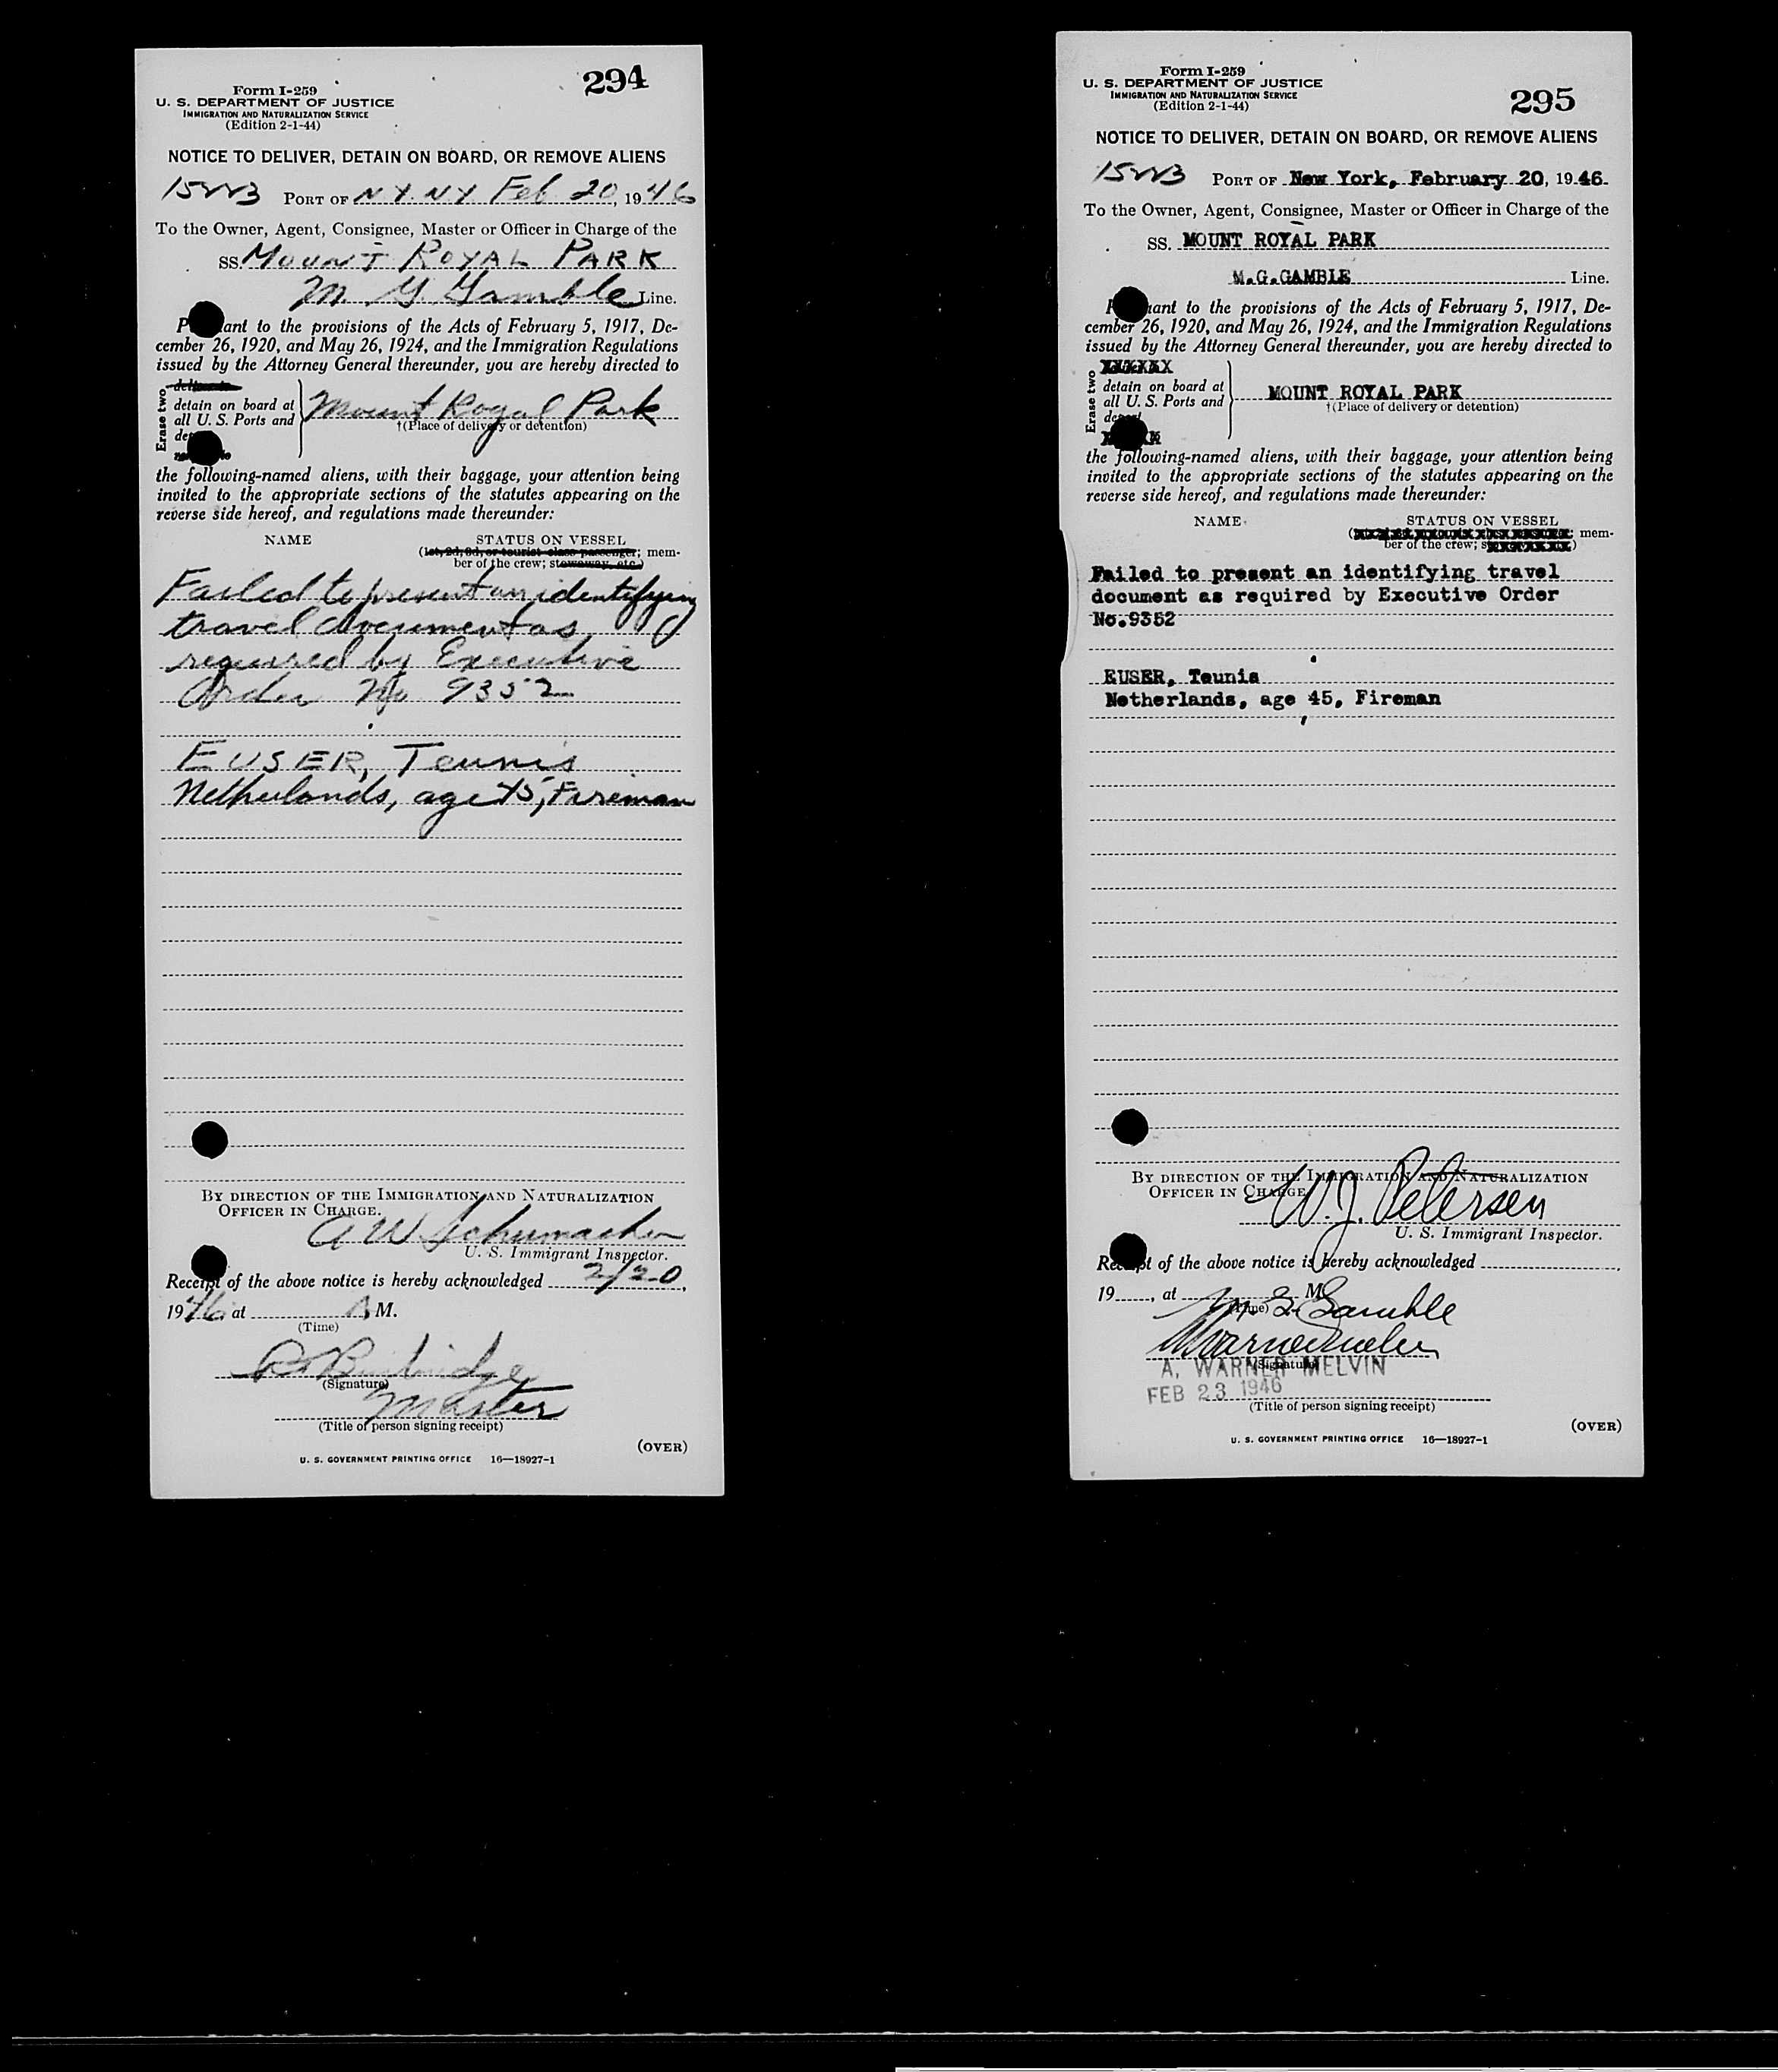 294
Form I-259
U. S. DEPARTMENT OF JUSTICE
IMMIGRATION AND NATURALIZATION SERVICE
(Edition 2-1-44)
NOTICE TO DELIVER, DETAIN ON BOARD, OR REMOVE ALIENS
PORT OF N.Y. N.Y. Feb 20, 1946
To the Owner, Agent, Consignee, Master or Officer in Charge of the
SS. MOUNT ROYAL PARK
M. G. Gamble Line.
P ant to the provisions of the Acts of February 5, 1917, De-
cember 26, 1920, and May 26, 1924, and the Immigration Regulations
issued by the Attorney General thereunder, you are hereby directed to
Erase two
deliver to
detain on board at
all U. S. Ports and
de
Mount Royal Park
†(Place of delivery or detention)
the following-named aliens, with their baggage, your attention being
invited to the appropriate sections of the statutes appearing on the
reverse side hereof, and regulations made thereunder:
NAME STATUS ON VESSEL
(1st, 2d, 3d, or tourist class passenger; mem-
ber of the crew; stowaway, etc.)
Failed to present an identifying
travel document as
required by Executive
Order No 9352
EUSER, Teunis
Netherlands, age 45, Fireman
BY DIRECTION OF THE IMMIGRATION AND NATURALIZATION
OFFICER IN CHARGE.
A W Schumacher
U. S. Immigrant Inspector.
Receipt of the above notice is hereby acknowledged 2/20,
1946 at A M.
(Time)
(Signature)
Master
(Title of person signing receipt)
(OVER)
U. S. GOVERNMENT PRINTING OFFICE 16—18927-1
295
Form I-259
U. S. DEPARTMENT OF JUSTICE
IMMIGRATION AND NATURALIZATION SERVICE
(Edition 2-1-44)
NOTICE TO DELIVER, DETAIN ON BOARD, OR REMOVE ALIENS
PORT OF New York, February 20, 1946.
To the Owner, Agent, Consignee, Master or Officer in Charge of the
SS. MOUNT ROYAL PARK
M.G.GAMBLE Line.
P uant to the provisions of the Acts of February 5, 1917, De-
cember 26, 1920, and May 26, 1924, and the Immigration Regulations
issued by the Attorney General thereunder, you are hereby directed to
Erase two
XXXXXX
detain on board at
all U. S. Ports and
deport
MOUNT ROYAL PARK
†(Place of delivery or detention)
the following-named aliens, with their baggage, your attention being
invited to the appropriate sections of the statutes appearing on the
reverse side hereof, and regulations made thereunder:
NAME STATUS ON VESSEL
mem-
ber of the crew;
Failed to present an identifying travel
document as required by Executive Order
No.9352
EUSER, Teunis
Netherlands, age 45, Fireman
BY DIRECTION OF THE IMMIGRATION AND NATURALIZATION
OFFICER IN CHARGE
W. J. Petersen
U. S. Immigrant Inspector.
Receipt of the above notice is hereby acknowledged
19 , at M
(Time)
M G Gamble
(Signature)
A. WARNER MELVIN
FEB 23 1946
(Title of person signing receipt)
(OVER)
U. S. GOVERNMENT PRINTING OFFICE 16—18927-1